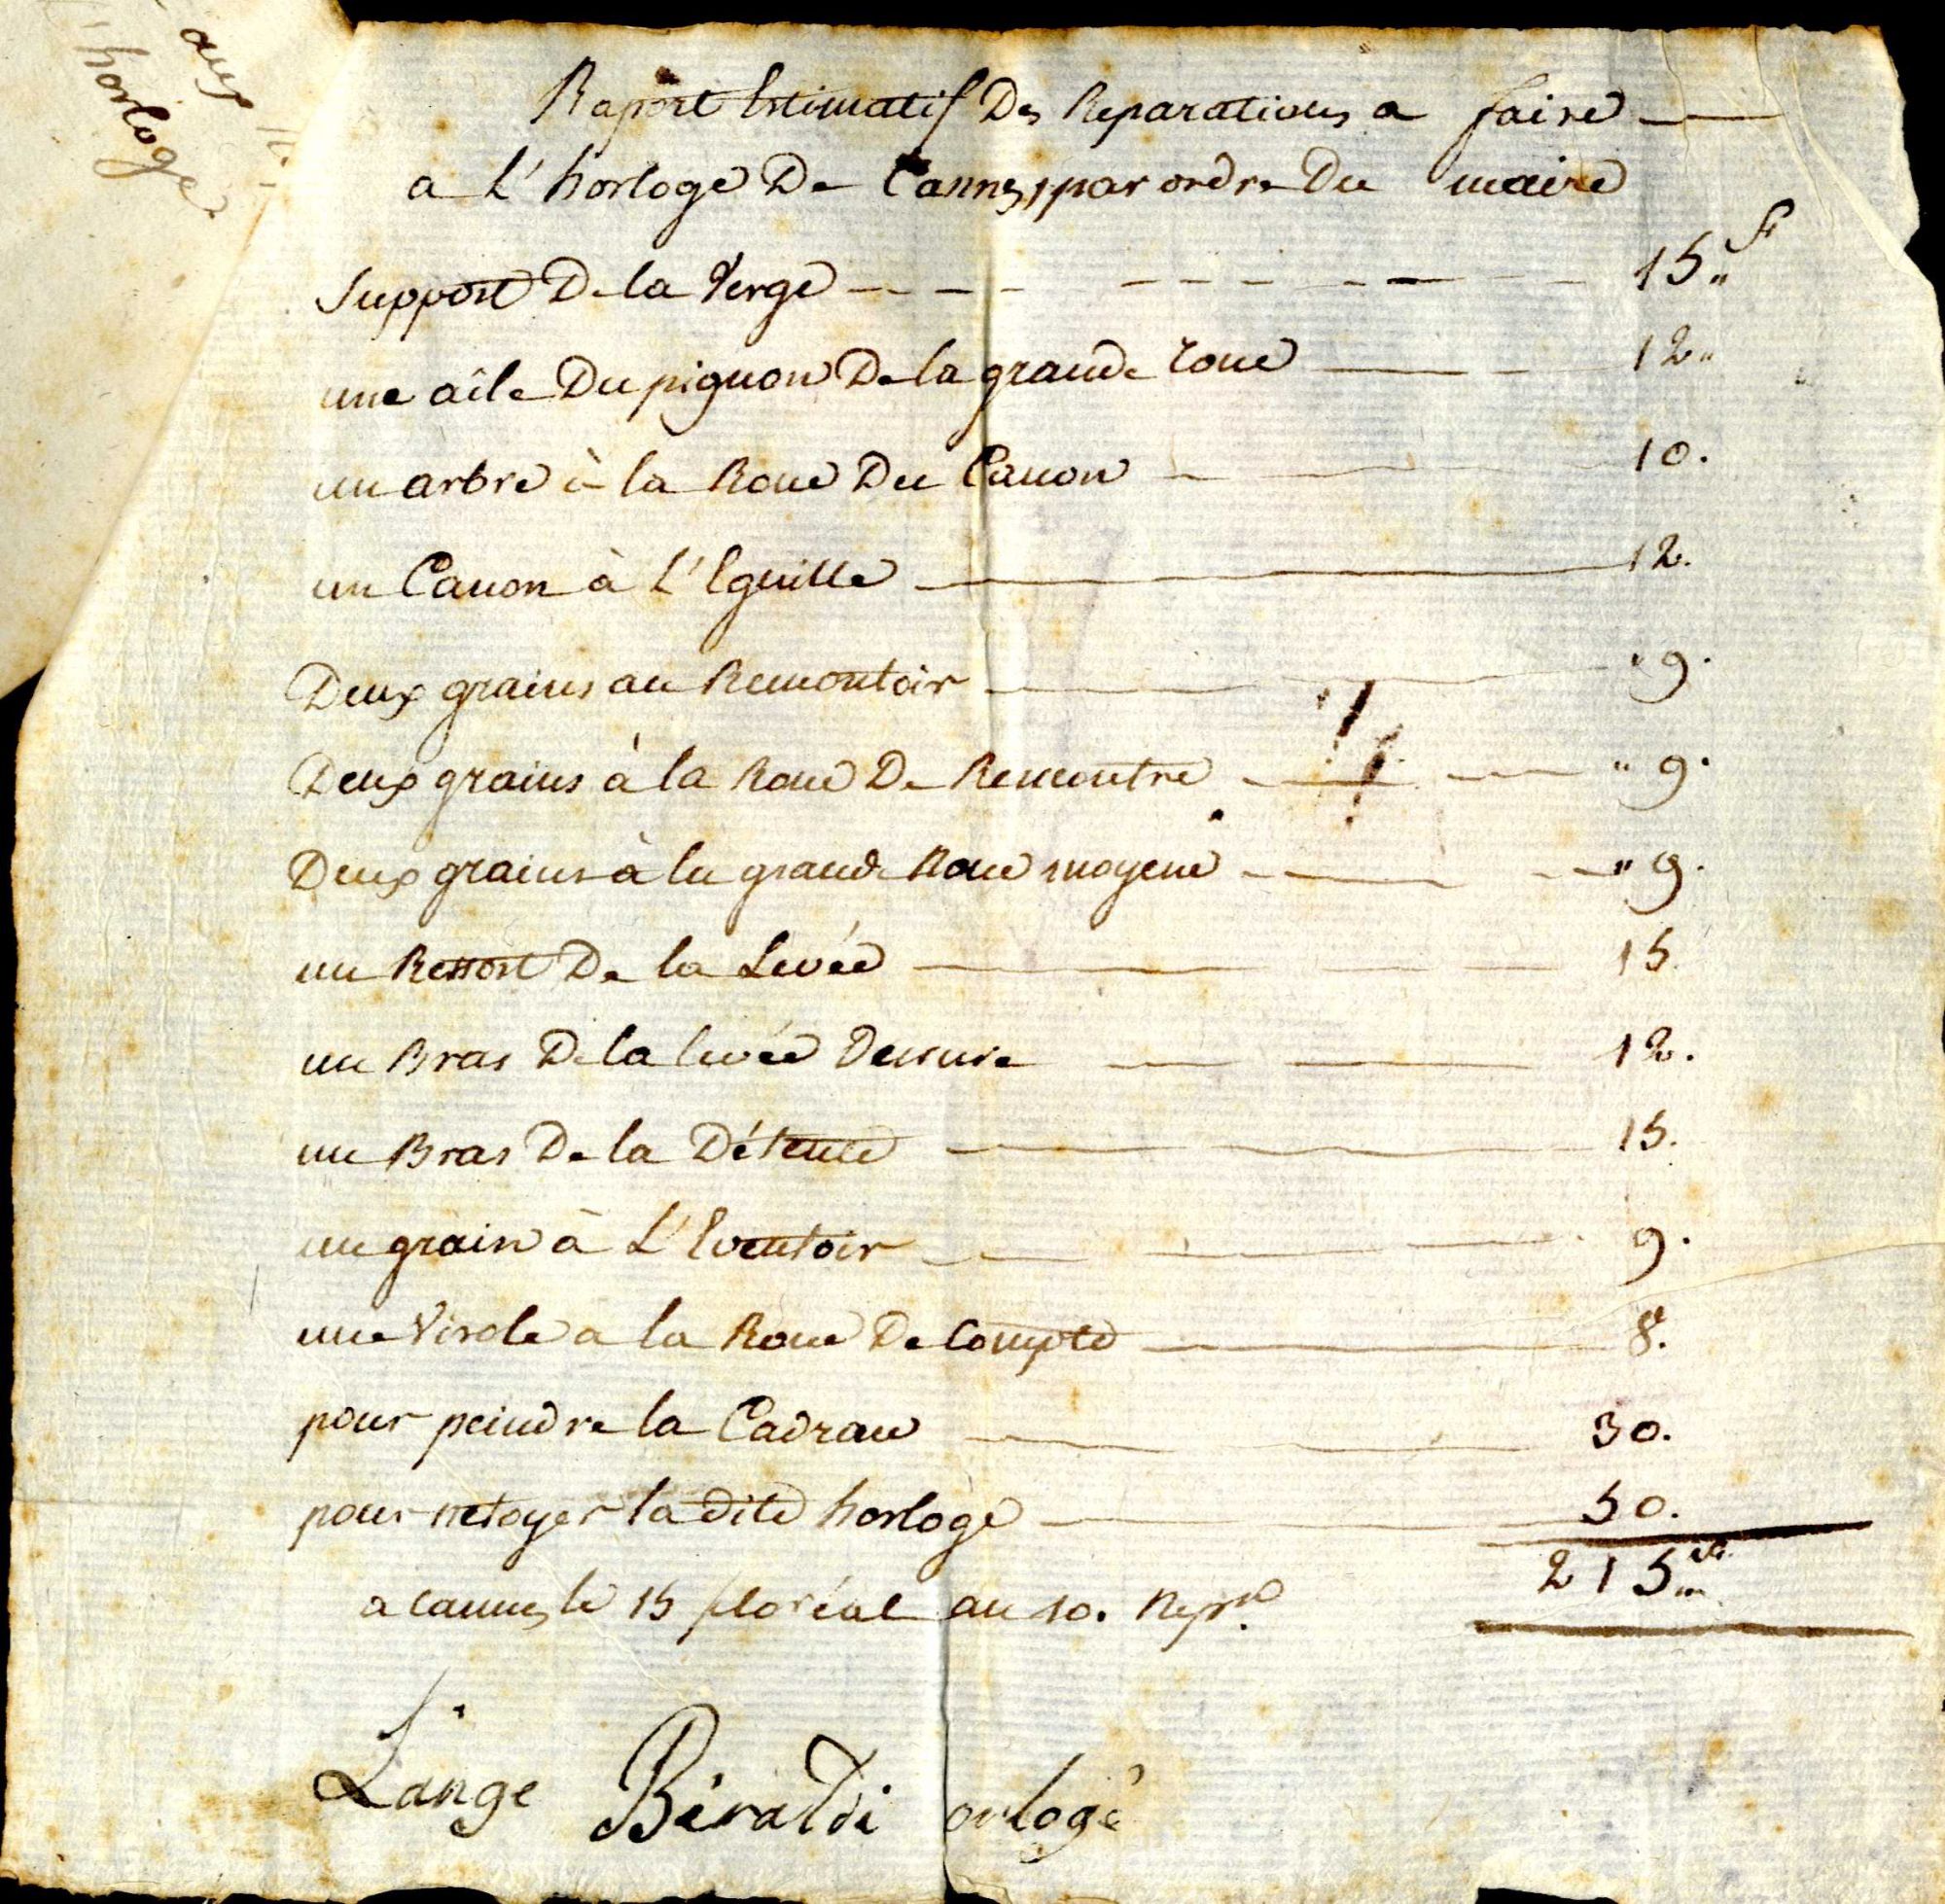 aux
horloge
Raport Estimatif Des Reparations a faire
a L'horloge De Cannes, par ordre Du maire
Support De la Verge 15 " fr
une aîle Du pignon De la grande roue 12 "
un arbre à la Roue Du Canon 10.
un Canon à L'Eguille 12.
Deux grains au Remontoir " 9.
Deux grains à la Roue De Rencontre " 9.
Deux grains à la grande Roue moyene " 9.
un Ressort De la Levée 15.
un Bras De la levée Dessure 12.
un Bras De la Détente 15.
un grain à L'Eventoir 9.
une Virole a la Roue De Compte 8.
pour peindre la Cadran 30.
pour netoyer la dite horloge 50.
215
a Cannes le 15 floréal an 10. Repne.
Lange Béraldi orloge